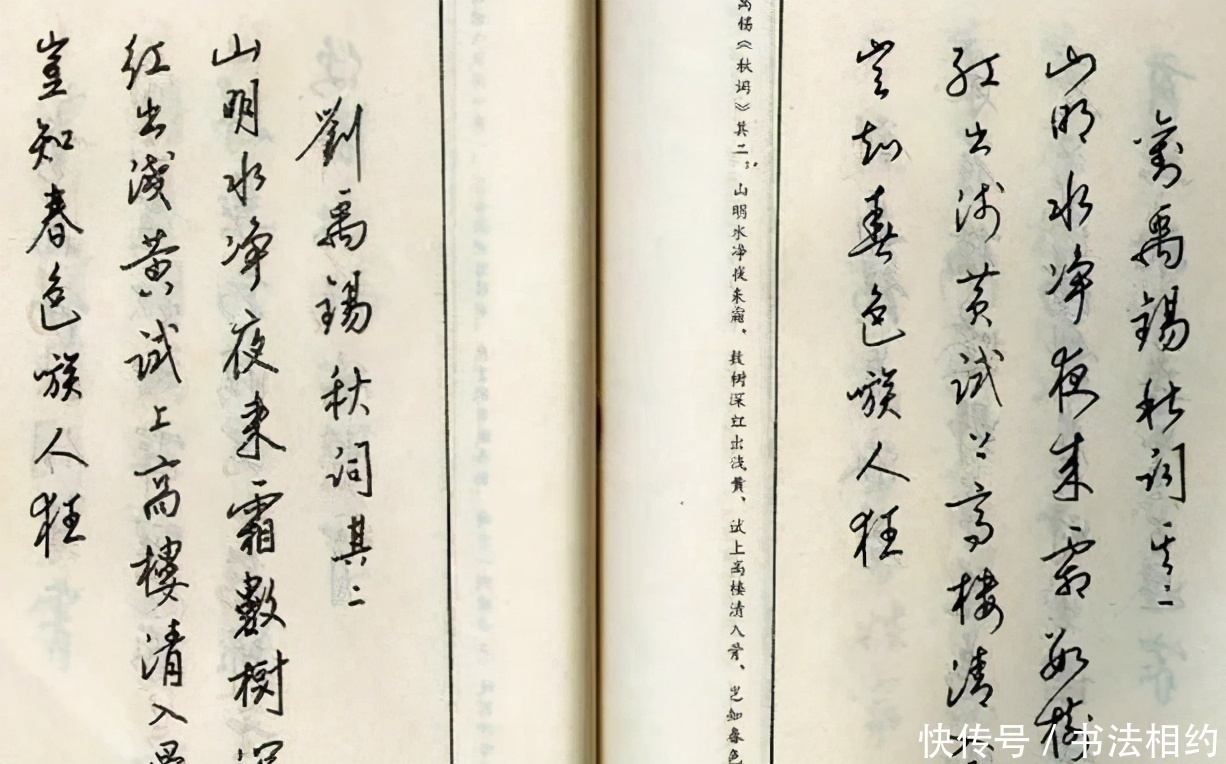 劉禹錫秋詞其二
山明水净夜来霜數樹
紅出淺黄試上高樓清
豈知春色嗾人狂
禹锡《秋词》其二。山明水净夜来霜、数树深红出浅黄、试上高楼清入骨、岂知春色
劉禹錫秋詞其二
山明水净夜来霜數樹深
紅出淺黄試上高樓清入
豈知春色嗾人狂
快传号 / 书法相约